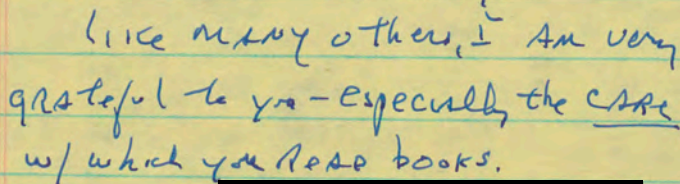 like many others, I am very
grateful to you - especially the care
w/ which you read books.